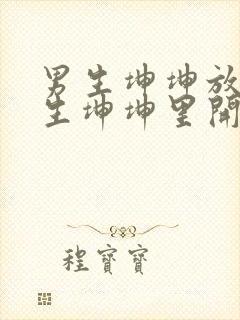 男生坤坤放
生坤坤里開
程寶寶